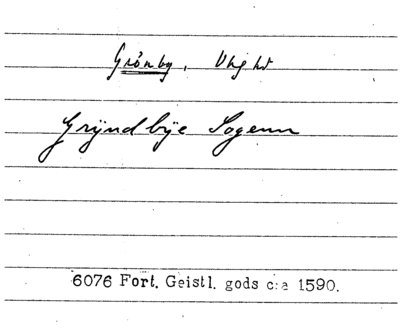 Grönby, Vhght
Grÿndbÿe Sogenn
6076 Fort. Geistl. gods c:a 1590.